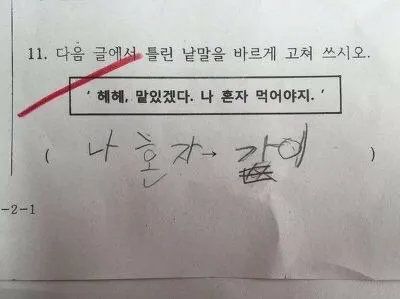 11. 다음 글에서 틀린 낱말을 바르게 고쳐 쓰시오.
' 헤헤, 맡있겠다. 나 혼자 먹어야지. '
( 나 혼자→ 같이 )
-2-1